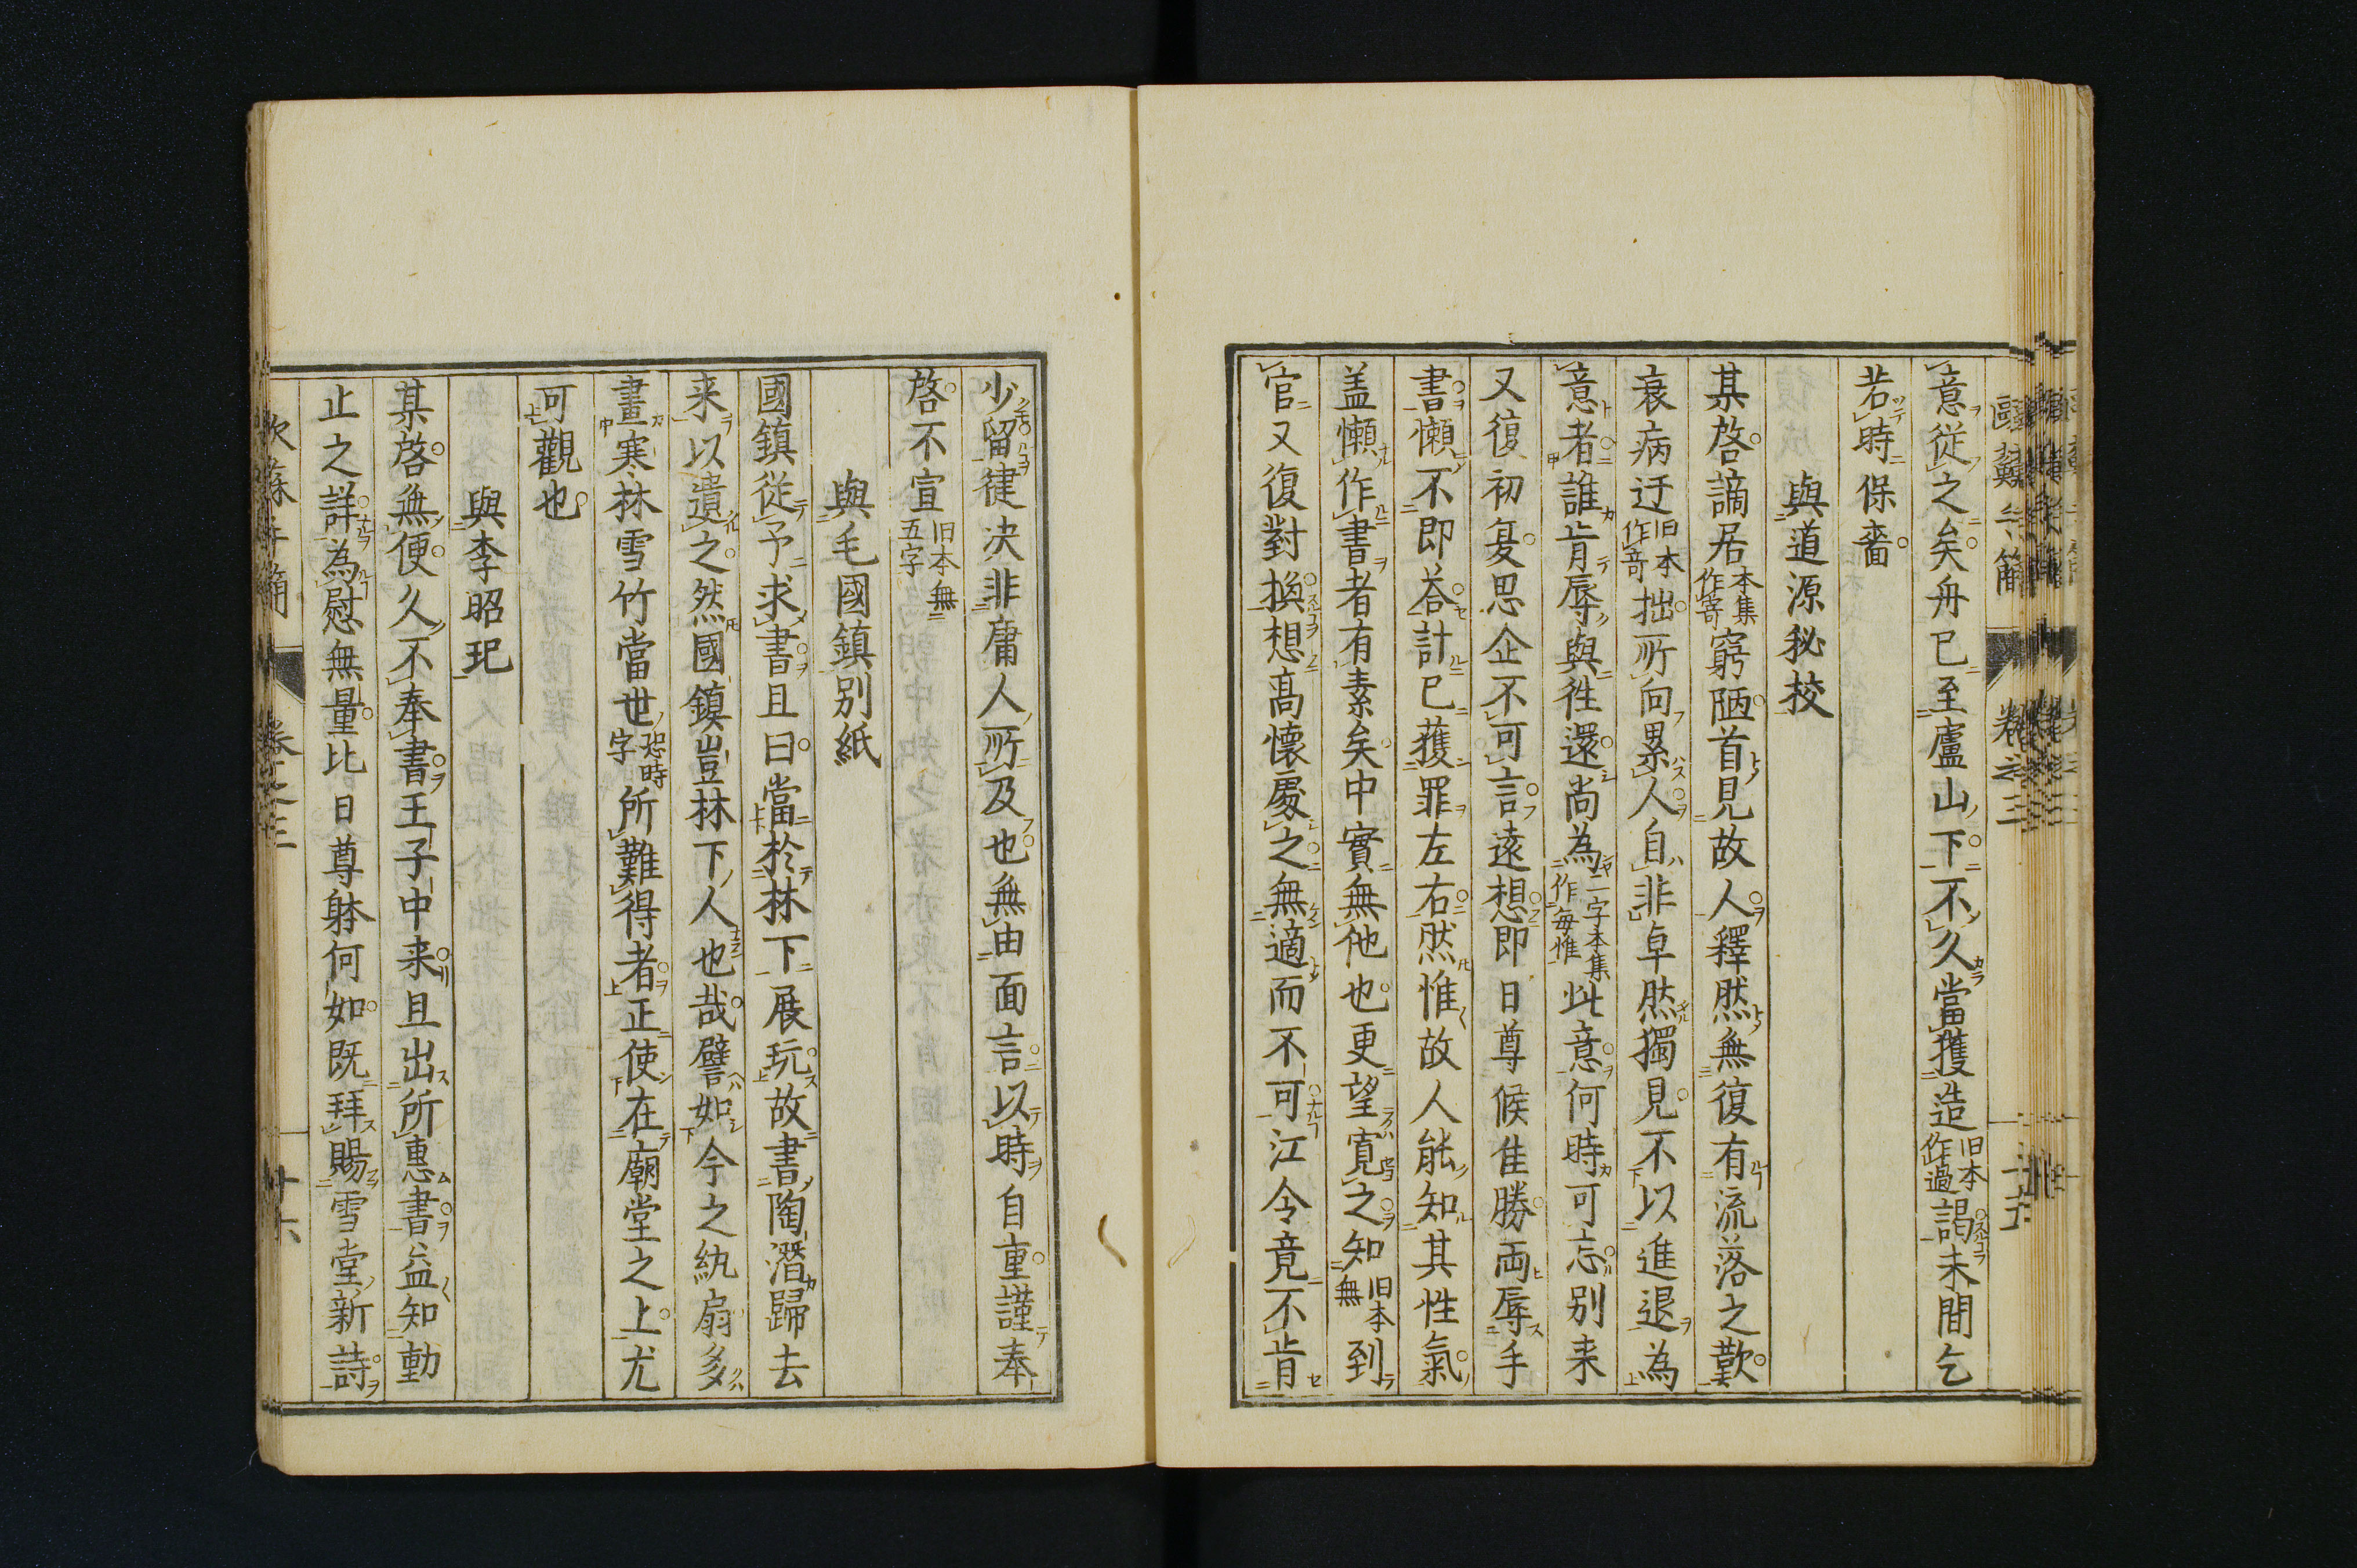 意從之矣舟已至廬山下不久當獲造旧本作過謁未間乞
若時保嗇
與道源秘校
某啓謫居本集作寄窮陋首見故人釋然無復有流落之歎
衰病迂旧本作奇拙所向累人自非卓然獨見不以進退為
意者誰肯辱與徃還尚為二字本集作毎惟此意何時可忘别来
又復初夏思企不可言遠想即日尊候佳勝両辱手
書懶不即荅計已獲罪左右然惟故人能知其性氣
盖懶作書者有素矣中實無他也更望寛之知旧本無到
官又復對換想髙懷處之無適而不可江令竟不肯
少留徤决非庸人所及也無由面言以時自重謹奉
啓不宣旧本無五字
與毛國鎮别紙
國鎮從予求書且曰當於林下展玩故書陶潛歸去
来以遺之然國鎮豈林下人也哉譬如今之紈扇多
畫寒林雪竹當世恐時字所難得者正使在廟堂之上尤
可觀也
與李昭玘
某啓無便久不奉書王子中来且出所惠書益知動
止之詳為慰無量比日尊躰何如既拜賜雪堂新詩